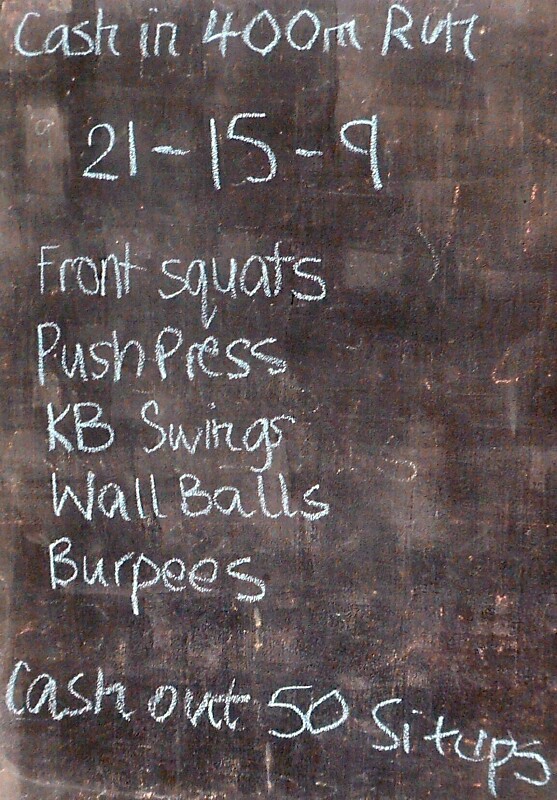 Cash in 400m Run
21-15-9
Front squats
Push Press
KB Swings
Wall Balls
Burpees
Cash out 50 Situps